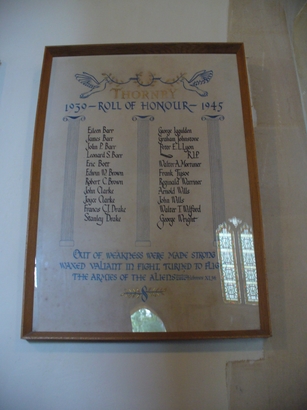 THORNEY
1939 - ROLL OF HONOUR - 1945
Eileen Barr
James Barr
John P. Barr
Leonard S. Barr
Eric Bott
Edwin W. Brown
Robert C. Brown
John Clarke
Joyce Clarke
Francis C.J. Drake
Stanley Drake
George
Graham Johnstone
Peter E.L. Lyon
R.I.P.
Walter A.
Frank Tyson
Reginald
Arnold Wills
John Wills
Walter T.
George
OUT OF WEAKNESS WERE MADE STRONG
WAXED VALIANT IN FIGHT TURNED TO FLIGHT
THE ARMIES OF THE ALIENS